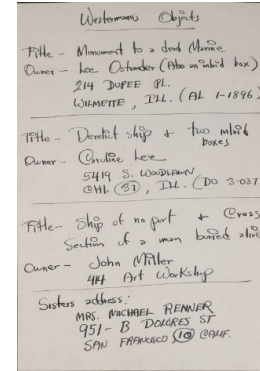 Westermanns Objects
Title - Monument to a dead Marine
Owner - Lee Ostrander (Also an inlaid box)
214 DUPEE PL.
WILMETTE, ILL. (AL 1-1896)
Title - Derelict ship + two inlaid boxes
Owner - Caroline Lee
5419 S. WOODLAWN
CHI. 37, ILL. (DO 3-037
Title - Ship of no port + Cross
Section of a man buried alive
Owner - John Miller
414 Art Workshop
Sisters address:
MRS. MICHAEL RENNER
951 - B DOLORES ST
SAN FRANCISCO 10 CALIF.